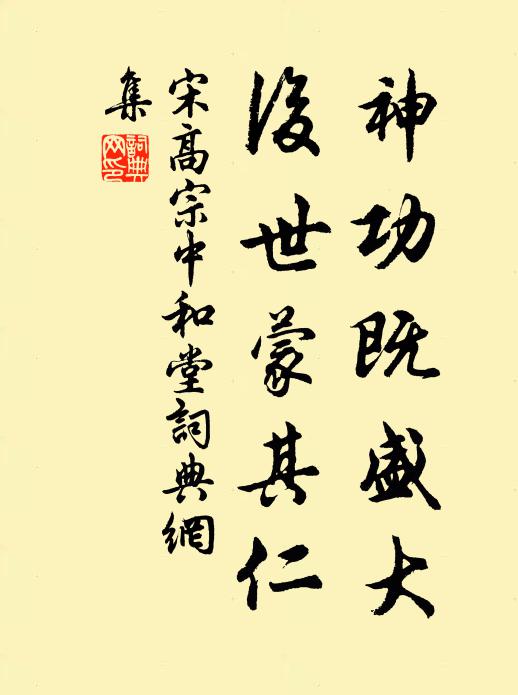 神功既盛大
後世蒙其仁
宋高宗中和堂詞典網
集
詞典網印